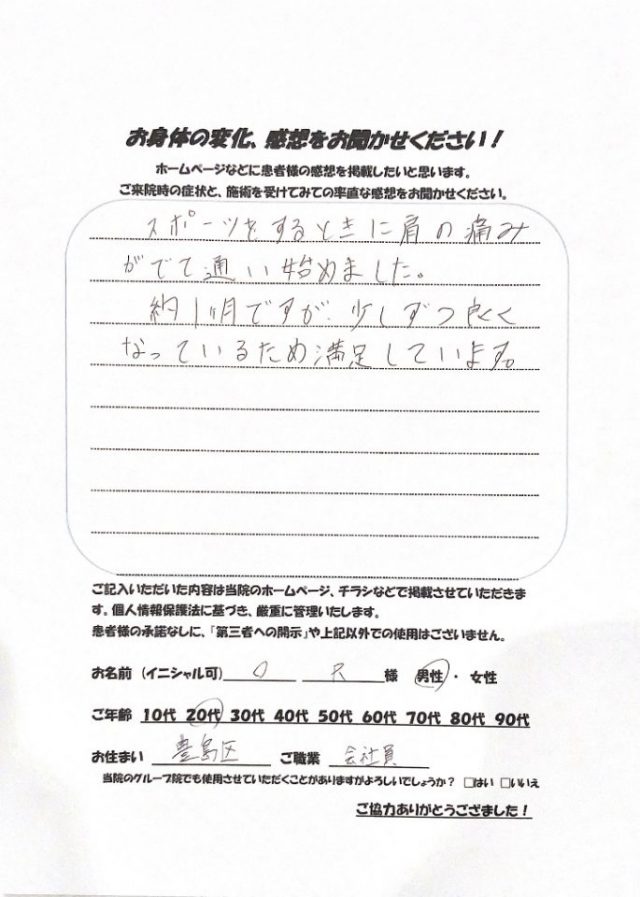 お身体の変化、感想をお聞かせください！
ホームページなどに患者様の感想を掲載したいと思います。
ご来院時の症状と、施術を受けてみての率直な感想をお聞かせください。
スポーツをするときに肩の痛み
がでて通い始めました。
約1ヶ月ですが、少しずつ良く
なっているため満足しています。
ご記入いただいた内容は当院のホームページ、チラシなどで掲載させていただきま
す。個人情報保護法に基づき、厳重に管理いたします。
患者様の承諾なしに、「第三者への開示」や上記以外での使用はございません。
お名前（イニシャル可） O R 様 男性・女性
ご年齢 10代 20代 30代 40代 50代 60代 70代 80代 90代
お住まい 豊島区 ご職業 会社員
当院のグループ院でも使用させていただくことがありますがよろしいでしょうか？ □はい □いいえ
ご協力ありがとうござました！